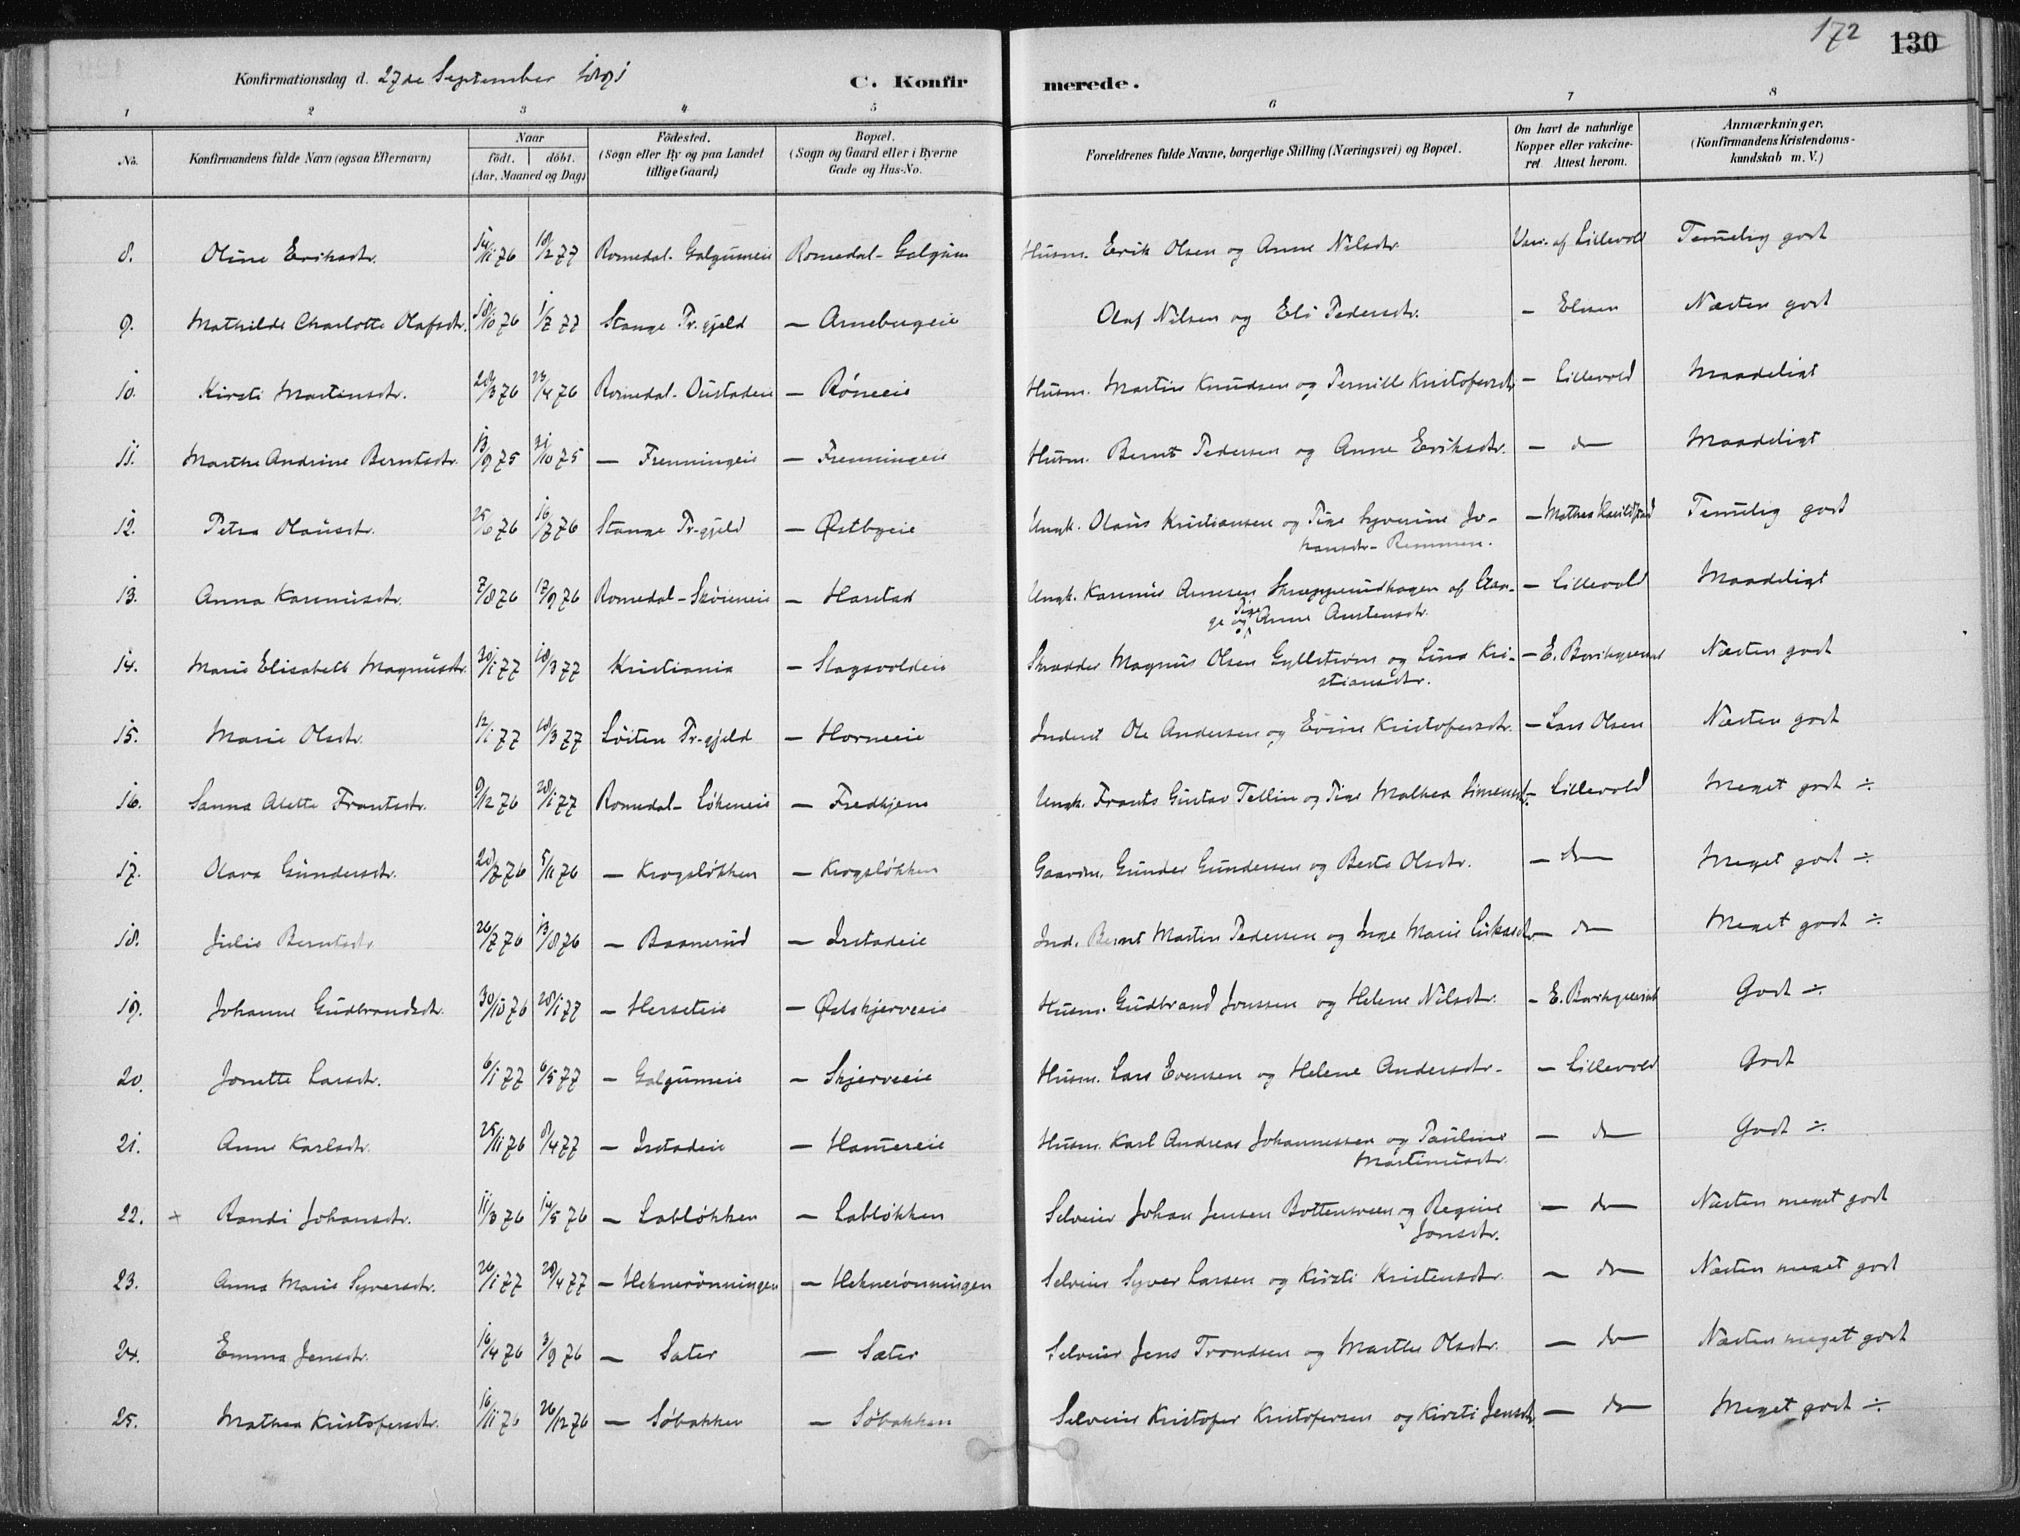 172
130
Konfirmationsdag d. 27de September 1891
C. Konfirmerede.
1 2 3 4 5 6 7 8
No. Konfirmandens fulde Navn (ogsaa Efternavn) Naar födt. döbt. (Aar, Maaned og Dag) Födested. (Sogn eller By og paa Landet tillige Gaard) Bopæl. (Sogn og Gaard eller i Byerne Gade og Hus-No. Forældrenes fulde Navne, borgerlige Stilling (Næringsvei) og Bopæl. Om havt de naturlige Kopper eller vakcineret. Attest herom. Anmærkninger. (Konfirmandens Kristendomskundskab m. V.)
8. Oline Eriksdtr. 14/11 76 18/2 77 Romedal - Galgumeie Romedal - Galgum Husm. Erik Olsen og Anne Nilsdtr. Vac. af Lillevold Temelig godt
9. Mathilde Charlotte Olafsdtr. 18/10 76 1/7 77 Stange Pr.gjeld — Arnebergeie Olaf Nilsen og Eli Pedersdtr. — Elisen Næsten godt
10. Kirsti Martinsdtr. 28/3 76 23/4 76 Romedal - Oustadeie — Röneeie Husm. Martin Knudsen og Pernille Kristofersdtr — Lillevold Maadeligt
11. Marthe Andrine Berntsdtr. 13/9 75 31/10 75 — Frenningeie — Frenningeie Husm. Bernt Pedersen og Anne Eriksdtr. — do — Maadeligt
12. Petra Olausdtr. 25/6 76 16/7 76 Stange Pr-gjeld — Østbyeie Ungk. Olaus Kristiansen og Pige Syverine Jo-
hansdtr - Remmen. — Mathea Temelig godt
13. Anna Karenusdtr. 7/8 76 17/9 76 Romedal - Sköieneie — Harstad Ungk. Karenus Arnesen Skræpperudhagen af Stan-
ge og Pige Anne Austensdtr. — Lillevold Maadeligt
14. Marie Elisabeth Magnusdtr. 30/1 77 18/3 77 Kristiania — Slagsvoldeie Skrædder Magnus Olsen Gyllström og Lina Kri-
stiansdtr. — E. Næsten godt
15. Marie Olsdtr. 12/1 77 18/3 77 Löiten Pr-gjeld — Horneeie Inderst Ole Andersen og Eline Kristofersdtr. — Lars Olsen Næsten godt
16. Sanna Alette Frantsdtr. 9/12 76 28/1 77 Romedal - Lökeneie — Fredhjem Ungk. Frants Gustav Tellin og Pige Mathea Simensdtr. — Lillevold Meget godt ÷
17. Olava Gundersdtr. 20/7 76 5/11 76 — Krogslökken — Krogslökken Gaardm. Gunder Gundersen og Berte Olsdtr. — do — Meget godt ÷
18. Julie Berntsdtr 26/7 76 13/8 76 — Baanerud — Instadeie Ind. Bernt Martin Pedersen og Inge Marie — do — Meget godt ÷
19. Johanne Gudbrandsdtr. 30/10 76 28/1 77 — Herseteie — Østskjerveeie Husm. Gudbrand Jonssen og Helene Nilsdtr. — E. Godt ÷
20. Jonette Larsdtr. 6/1 77 6/5 77 — Galgumeie — Skjerveeie Husm. Lars Evensen og Helene Andersdtr. — Lillevold Godt
21. Anne Karlsdtr. 25/11 76 8/4 77 — Instadeie — Hamereie Husm. Karl Andreas Johannessen og Pauline
Martinusdtr. — do — Godt ÷
22. + Randi Johansdtr. 11/3 76 14/5 76 — Lablökken — Lablökken Selveier Johan Jensen Bottensveen og Regine
Jonsdtr. — do — Næsten meget godt
23. Anna Marie Syversdtr. 26/1 77 28/4 77 — Heknerönningen — Heknerönningen Selveier Syver Larsen og Kirsti Kristensdtr. — do — Næsten meget godt
24. Emma Jensdtr. 16/4 76 3/9 76 — Sæter — Sæter Selveier Jens Trondsen og Marthe Olsdtr. — do — Næsten meget godt
25. Mathea Kristofersdtr. 16/11 76 26/12 76 — Söbakken — Söbakken Selveier Kristofer Kristofersen og Kirsti Jensdtr. — do — Meget godt ÷